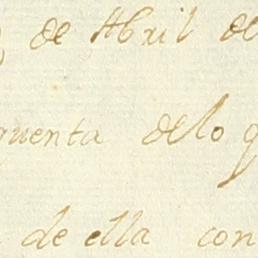 de Abril de
quenta delo q
de ella con